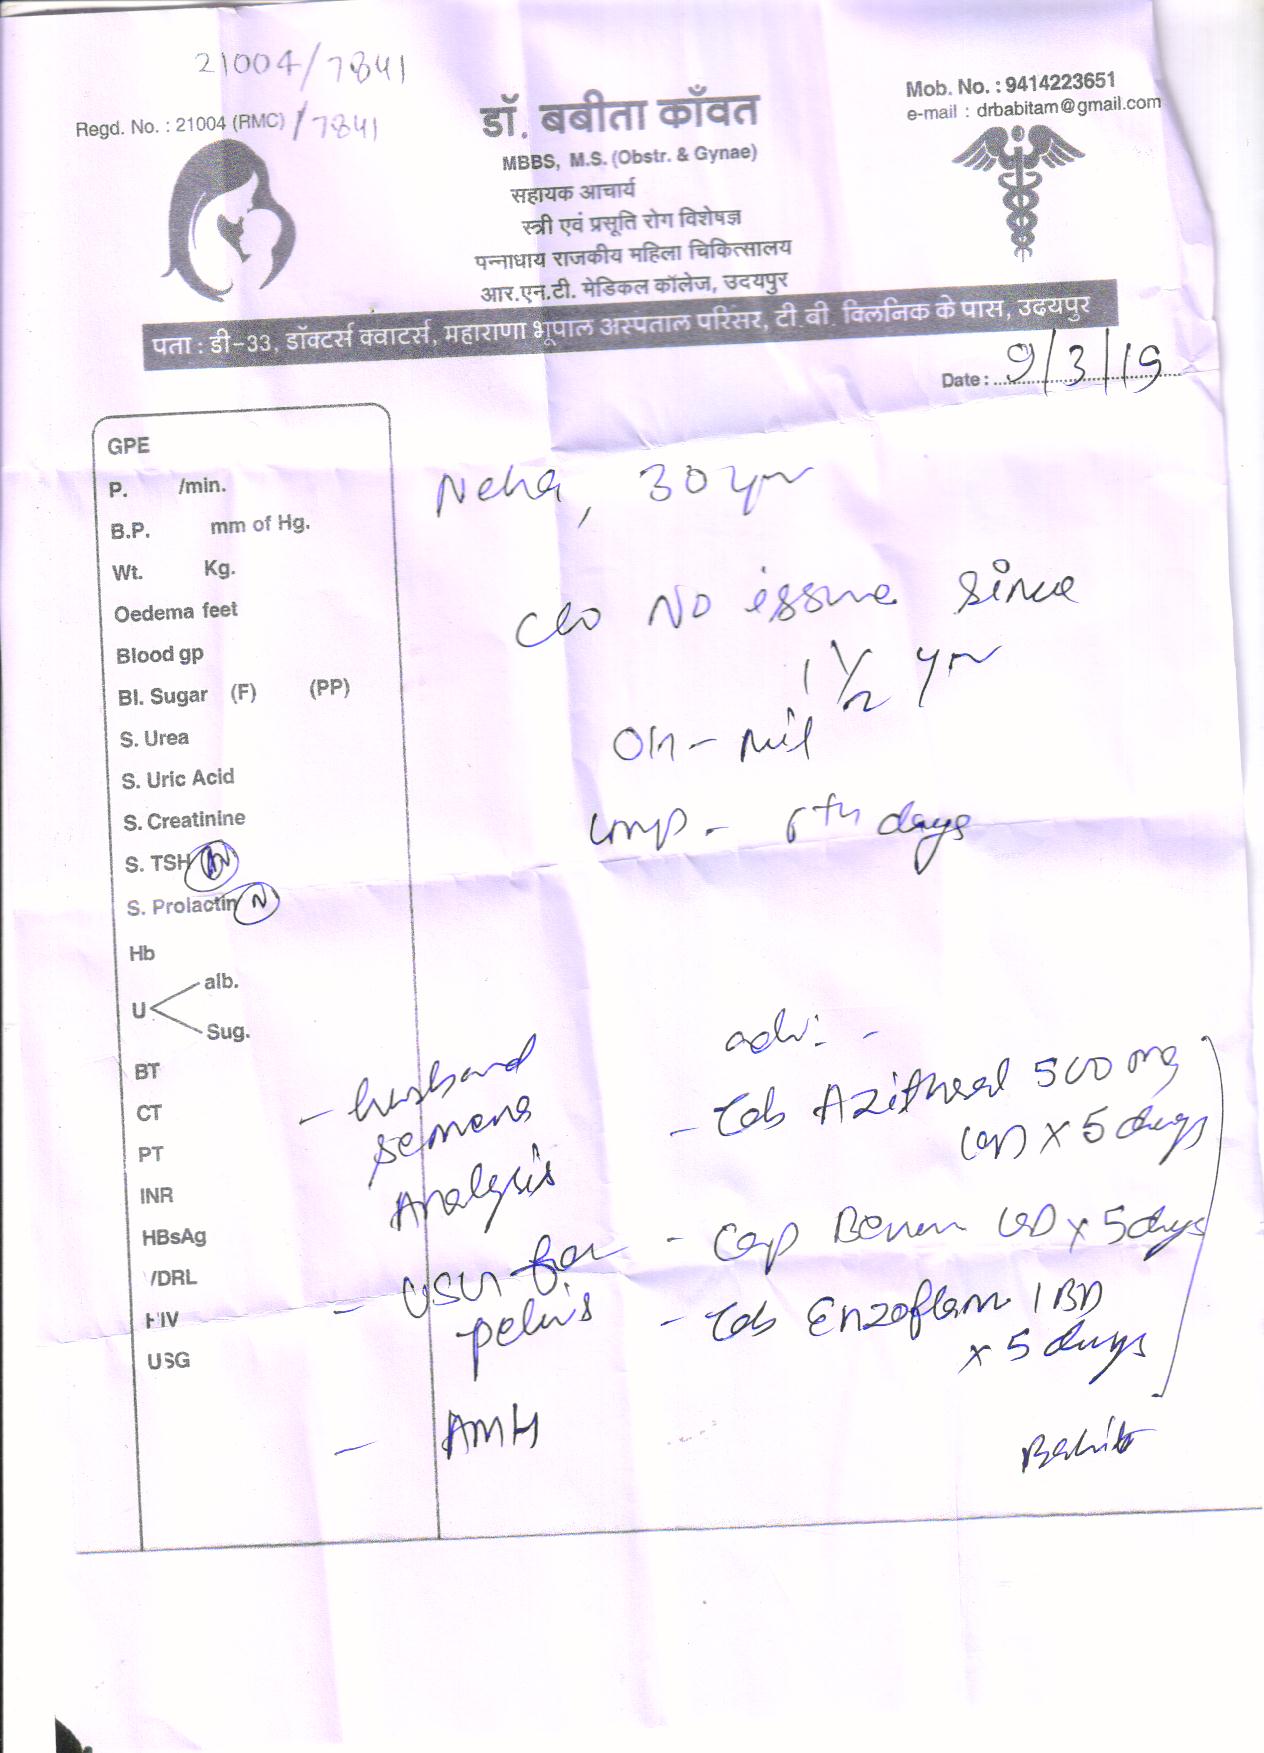 21004/7841
Regd. No. : 21004 (RMC) /7841
डॉ. बबीता काँवत
MBBS, M.S. (Obstr. & Gynae)
सहायक आचार्य
स्त्री एवं प्रसूति रोग विशेषज्ञ
पन्नाधाय राजकीय महिला चिकित्सालय
आर.एन.टी. मेडिकल कॉलेज, उदयपुर
Mob. No. : 9414223651
e-mail : drbabitam@gmail.com
पता : डी-33, डॉक्टर्स क्वाटर्स, महाराणा भूपाल अस्पताल परिसर, टी.बी. क्लिनिक के पास, उदयपुर
Date : 9/3/19
GPE
P. /min.
B.P. mm of Hg.
Wt. Kg.
Oedema feet
Blood gp
Bl. Sugar (F) (PP)
S. Urea
S. Uric Acid
S. Creatinine
S. TSH N
S. Prolactin N
Hb
U alb.
Sug.
BT
CT
PT
INR
HBsAg
VDRL
HIV
USG
Neha, 30 yr
C/O No issue since
1 1/2 yr
O/H - Nil
LMP - 6th days
- husband
semens
Analysis
- USG for
pelvis
- AMH
adv: -
- Tab Azithral 500 mg
(OD) x 5 days
- Cap OD x 5 days
- Tab Enzoflam 1 BD
x 5 days